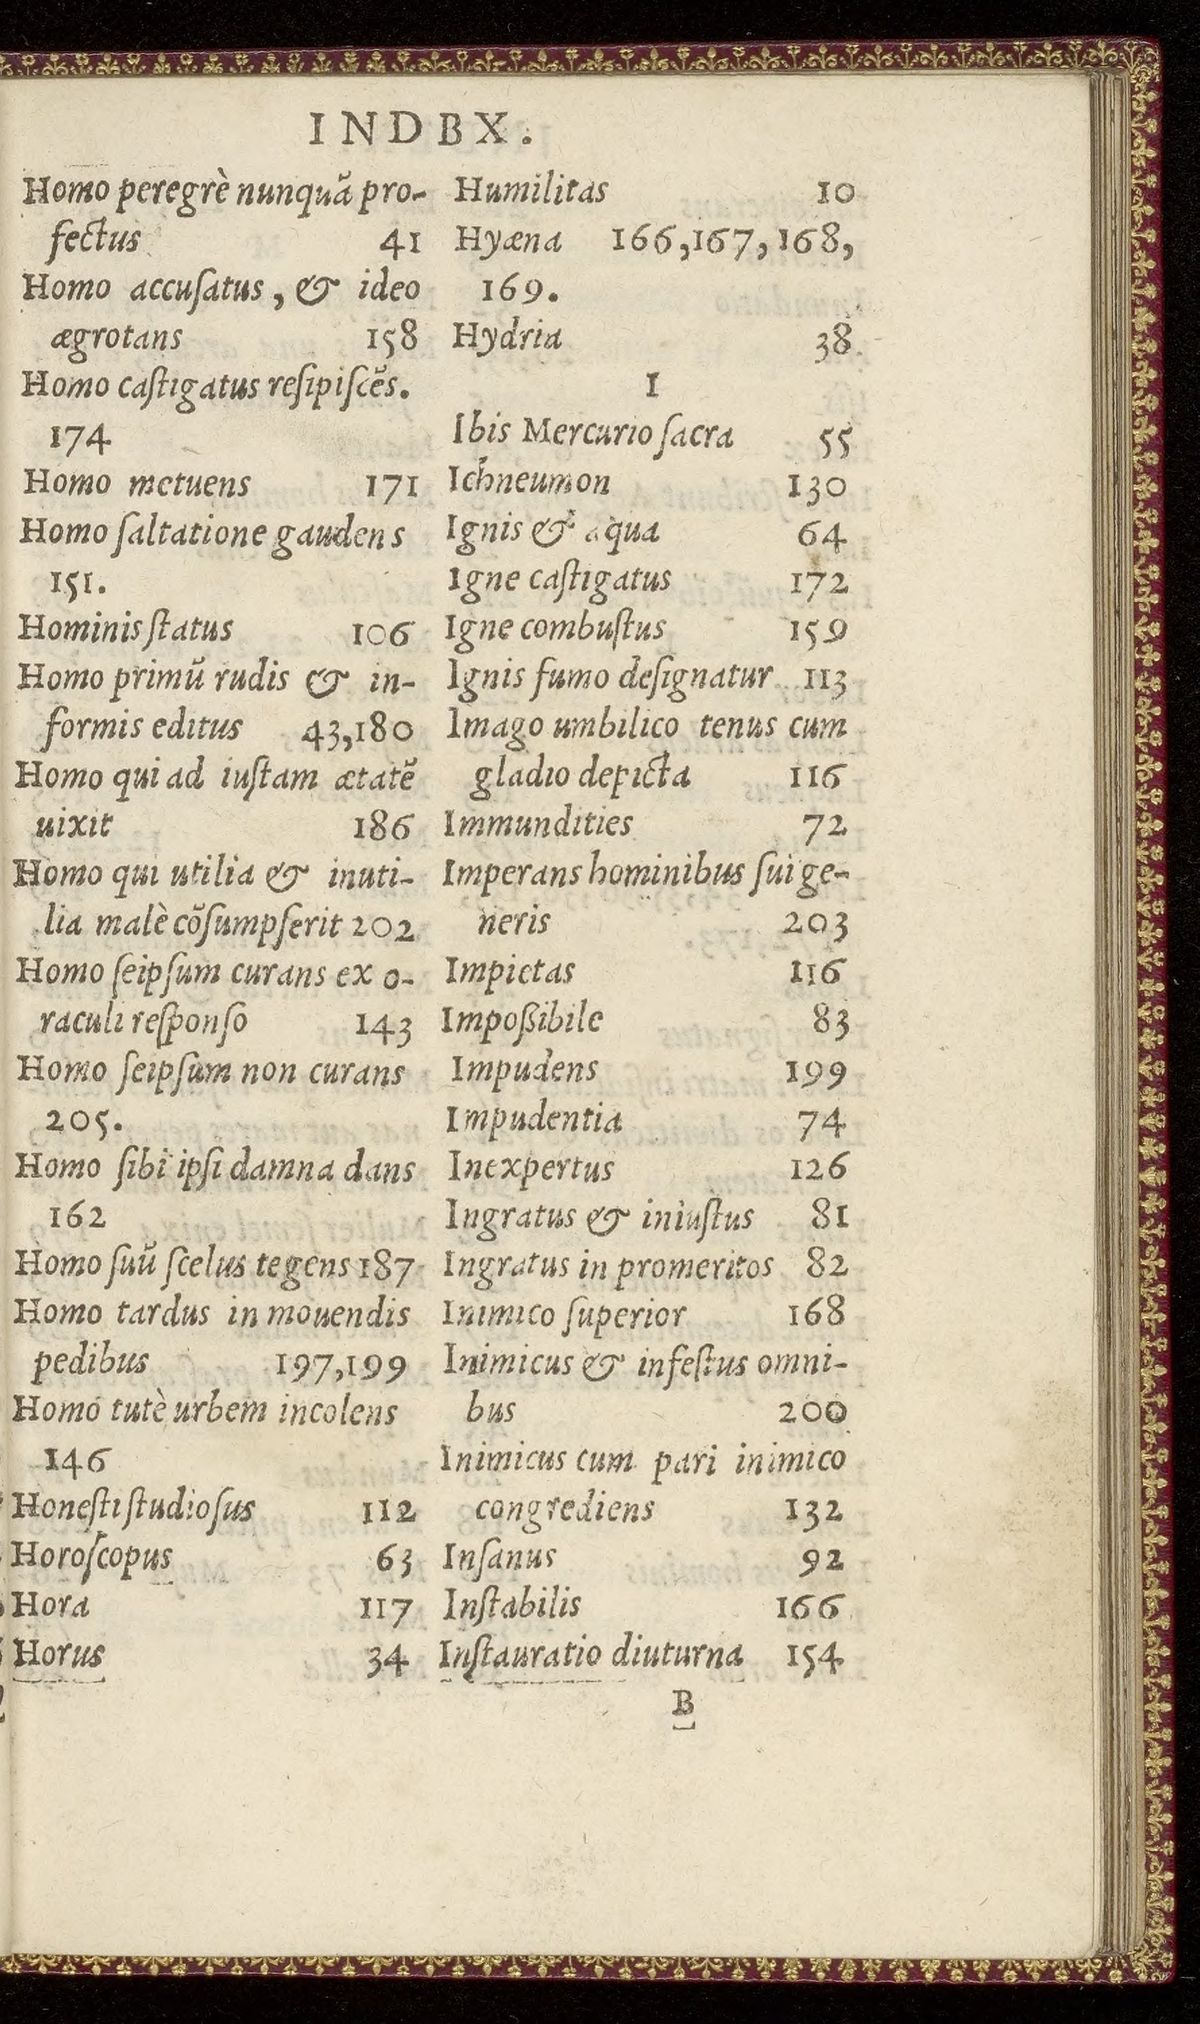 INDBX.
Homo peregrè nunquã pro-
fectus 41
Homo accuſatus, & ideo
ægrotans 158
Homo caſtigatus reſipiſcẽs.
174
Homo metuens 171
Homo ſaltatione gaudens
151.
Hominis ſtatus 106
Homo primũ rudis & in-
formis editus 43,180
Homo qui ad iuſtam ætatẽ
uixit 186
Homo qui utilia & inuti-
lia malè cõſumpſerit 202
Homo ſeipſum curans ex o-
raculi reſponſo 143
Homo ſeipſum non curans
205.
Homo ſibi ipſi damna dans
162
Homo ſuũ ſcelus tegens 187
Homo tardus in mouendis
pedibus 197,199
Homo tutè urbem incolens
146
Honeſti ſtudioſus 112
Horoſcopus 63
Hora 117
Horus 34
Humilitas 10
Hyæna 166,167,168,
169.
Hydria 38
I
Ibis Mercurio ſacra 55
Ichneumon 130
Ignis & aqua 64
Igne caſtigatus 172
Igne combuſtus 159
Ignis fumo deſignatur 113
Imago umbilico tenus cum
gladio depicta 116
Immundities 72
Imperans hominibus ſui ge-
neris 203
Impietas 116
Impoßibile 83
Impudens 199
Impudentia 74
Inexpertus 126
Ingratus & iniuſtus 81
Ingratus in promeritos 82
Inimico ſuperior 168
Inimicus & infeſtus omni-
bus 200
Inimicus cum pari inimico
congrediens 132
Inſanus 92
Inſtabilis 166
Inſtauratio diuturna 154
B